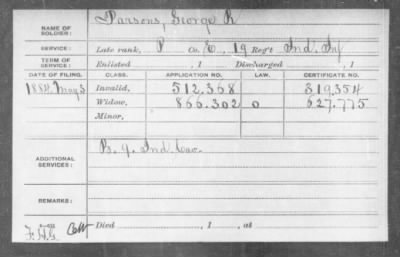 NAME OF SOLDIER: Parsons, George R
SERVICE: Late rank, P Co. E, 19 Reg't Ind. Inf
TERM OF SERVICE: Enlisted , 1 Discharged , 1
DATE OF FILING. CLASS. APPLICATION NO. LAW. CERTIFICATE NO.
1884 May 3 Invalid, 512.368 319.354
Widow, 866.302 o 627.775
Minor,
ADDITIONAL SERVICES: B. 9. Ind. Cav.
REMARKS:
Died , 1 , at